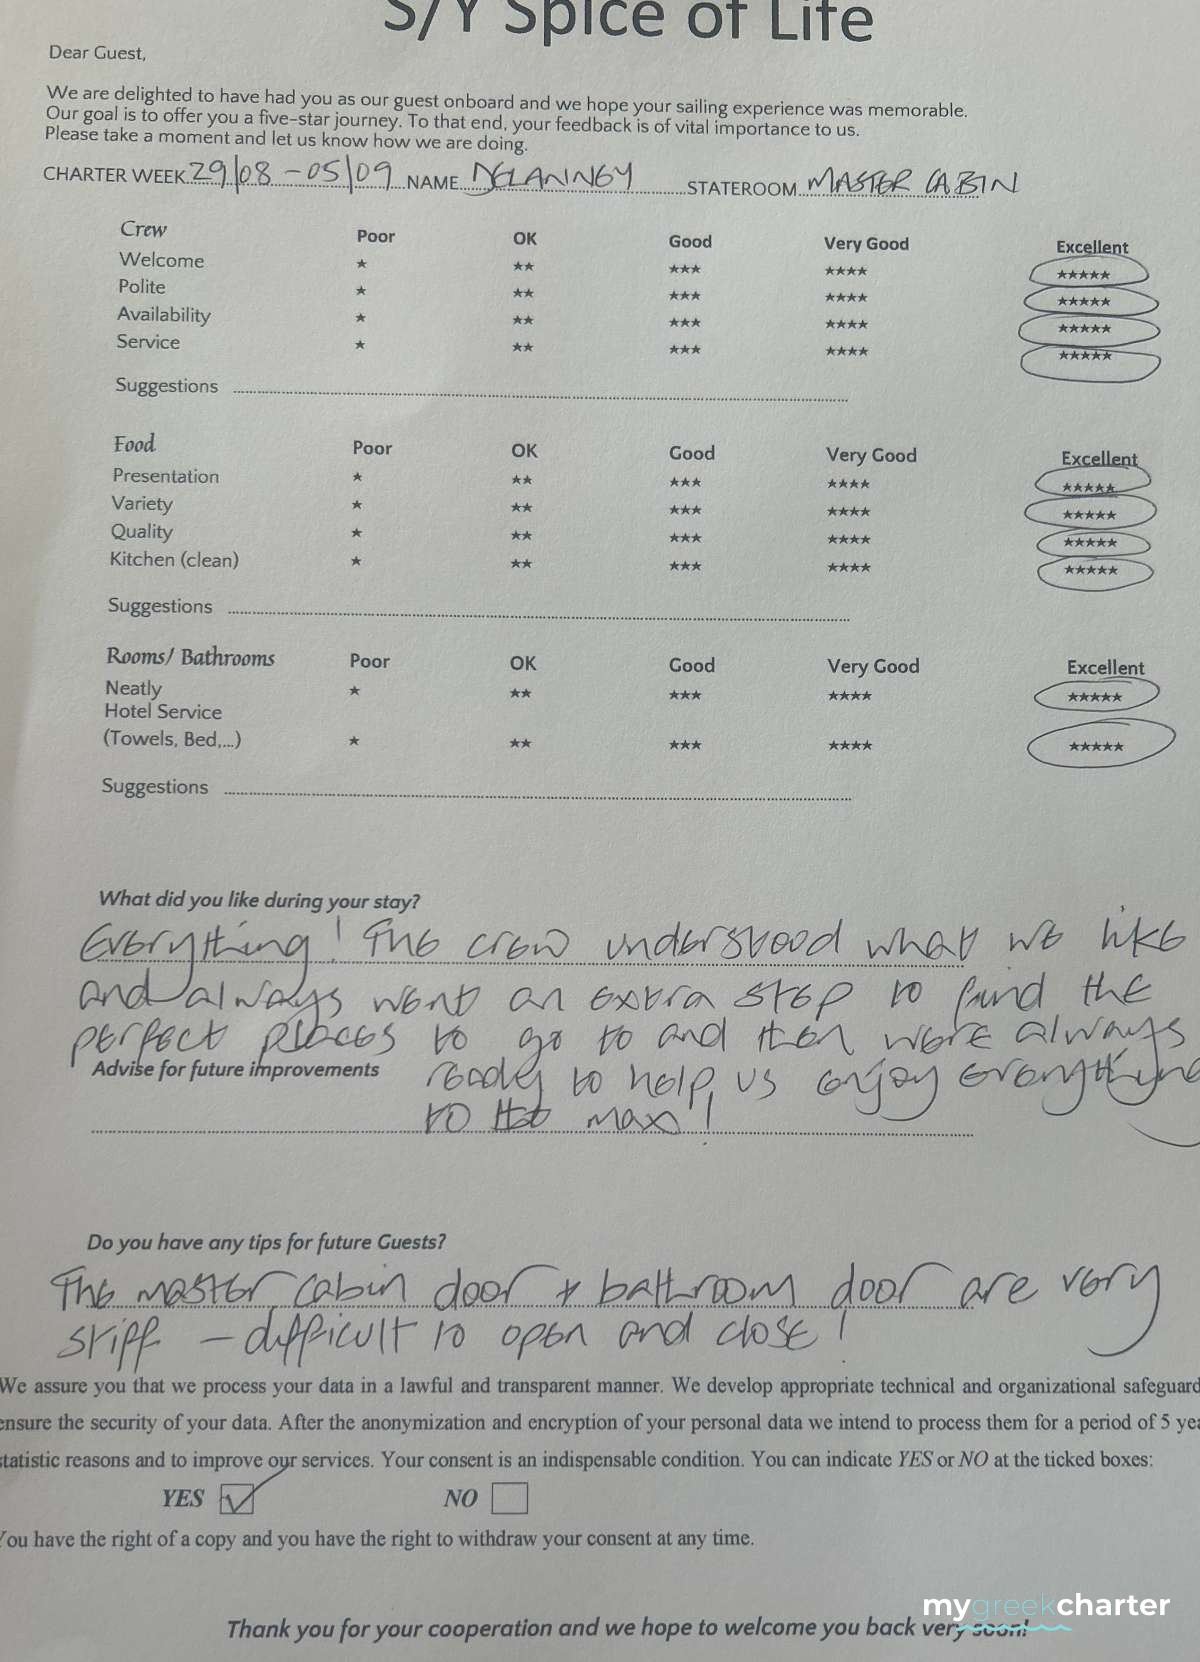 S/Y Spice of Life
Dear Guest,
We are delighted to have had you as our guest onboard and we hope your sailing experience was memorable.
Our goal is to offer you a five-star journey. To that end, your feedback is of vital importance to us.
Please take a moment and let us know how we are doing.
CHARTER WEEK 29/08 - 05/09 NAME DELANNEY STATEROOM MASTER CABIN
Crew Poor OK Good Very Good Excellent
Welcome ★ ★★ ★★★ ★★★★ ★★★★★
Polite ★ ★★ ★★★ ★★★★ ★★★★★
Availability ★ ★★ ★★★ ★★★★ ★★★★★
Service ★ ★★ ★★★ ★★★★ ★★★★★
Suggestions
Food Poor OK Good Very Good Excellent
Presentation ★ ★★ ★★★ ★★★★ ★★★★★
Variety ★ ★★ ★★★ ★★★★ ★★★★★
Quality ★ ★★ ★★★ ★★★★ ★★★★★
Kitchen (clean) ★ ★★ ★★★ ★★★★ ★★★★★
Suggestions
Rooms/ Bathrooms Poor OK Good Very Good Excellent
Neatly ★ ★★ ★★★ ★★★★ ★★★★★
Hotel Service
(Towels, Bed,...) ★ ★★ ★★★ ★★★★ ★★★★★
Suggestions
What did you like during your stay?
Everything! The crew understood what we like
and always went an extra step to find the
perfect places to go to and then were always
Advise for future improvements ready to help us enjoy everything
to the max!
Do you have any tips for future Guests?
The master cabin door + bathroom door are very
stiff - difficult to open and close!
We assure you that we process your data in a lawful and transparent manner. We develop appropriate technical and organizational safeguard
ensure the security of your data. After the anonymization and encryption of your personal data we intend to process them for a period of 5 yea
statistic reasons and to improve our services. Your consent is an indispensable condition. You can indicate YES or NO at the ticked boxes:
YES NO
You have the right of a copy and you have the right to withdraw your consent at any time.
mygreekcharter
Thank you for your cooperation and we hope to welcome you back very soon!